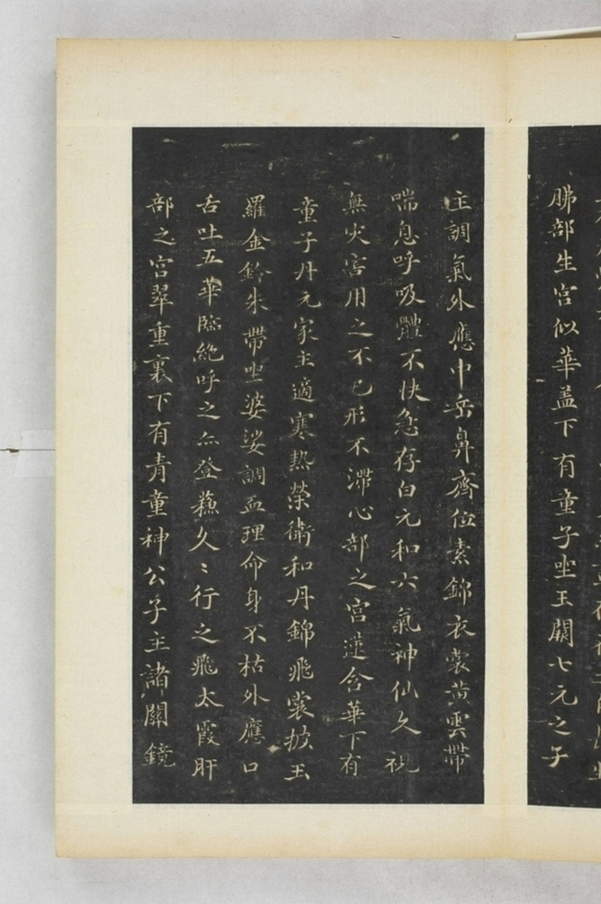 肺部生宮似華盖下有童子坐玉闕七元之子
主調氣外應中岳鼻齊位素錦衣裳黄雲帶
喘息呼吸體不快急存白元和六氣神仙久視
無灾害用之不已形不滯心部之宮蓮含華下有
童子丹元家主適寒熱榮衛和丹錦飛裳披玉
羅金鈴朱帶坐婆娑調血理命身不枯外應口
舌吐五華臨絶呼之亦登蘓久〻行之飛太霞肝
部之宮翠重裏下有青童神公子主諸關鏡